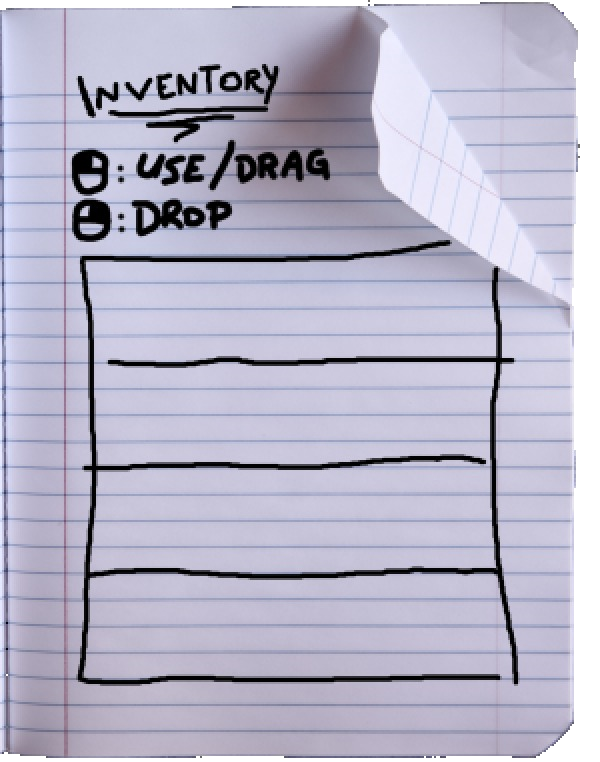 INVENTORY
: USE/DRAG
: DROP